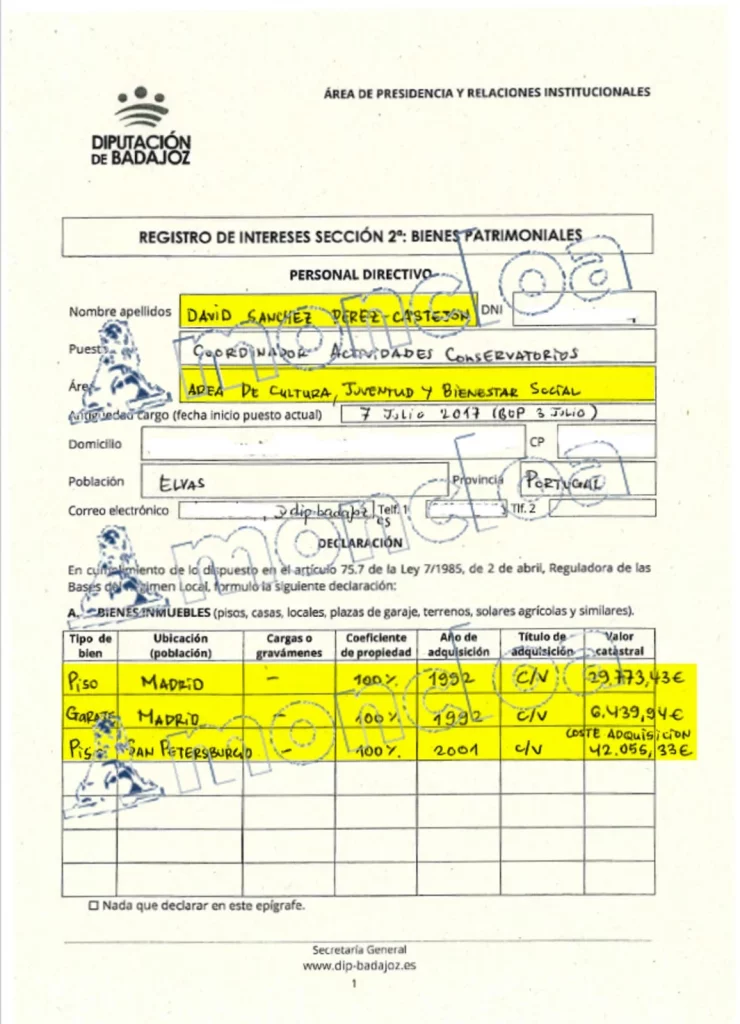 ÁREA DE PRESIDENCIA Y RELACIONES INSTITUCIONALES
DIPUTACIÓN
DE BADAJOZ
REGISTRO DE INTERESES SECCIÓN 2ª: BIENES PATRIMONIALES
PERSONAL DIRECTIVO
Nombre apellidos DAVID SANCHEZ PEREZ-CASTEJON DNI
Puesto COORDINADOR ACTIVIDADES CONSERVATORIOS
Área AREA DE CULTURA, JUVENTUD Y BIENESTAR SOCIAL
Antigüedad cargo (fecha inicio puesto actual) 7 JULIO 2017 (BOP 3 JULIO)
Domicilio CP
Población ELVAS Provincia PORTUGAL
Correo electrónico dip-badajoz.es Telf. 1 Tlf. 2
DECLARACIÓN
En cumplimiento de lo dispuesto en el artículo 75.7 de la Ley 7/1985, de 2 de abril, Reguladora de las
Bases del Régimen Local, formulo la siguiente declaración:
A. BIENES INMUEBLES (pisos, casas, locales, plazas de garaje, terrenos, solares agrícolas y similares).
Tipo de bien Ubicación (población) Cargas o gravámenes Coeficiente de propiedad Año de adquisición Título de adquisición Valor catastral
PISO MADRID - 100% 1992 C/V 29.773,43€
GARAJE MADRID - 100% 1992 C/V 6.439,94€
PISO SAN PETERSBURGO - 100% 2001 C/V COSTE ADQUISICION 42.055,33€
☐ Nada que declarar en este epígrafe.
Secretaría General
www.dip-badajoz.es
1
moncloa
moncloa
moncloa